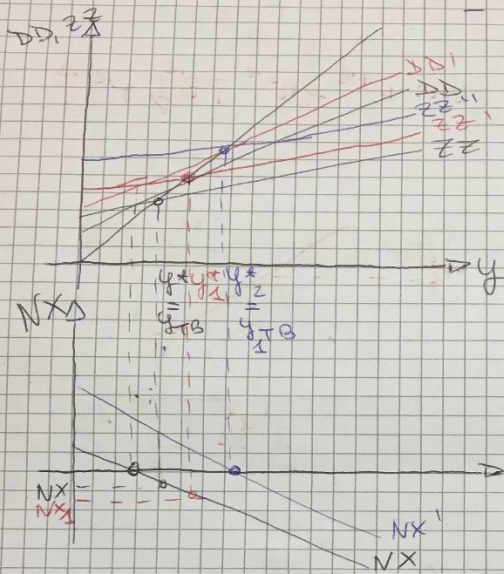 DD, ZZ
DD'
DD
ZZ''
ZZ'
ZZ
y
y* y*1 y*2
= =
yTB y1TB
NX
NX
NX1
NX'
NX